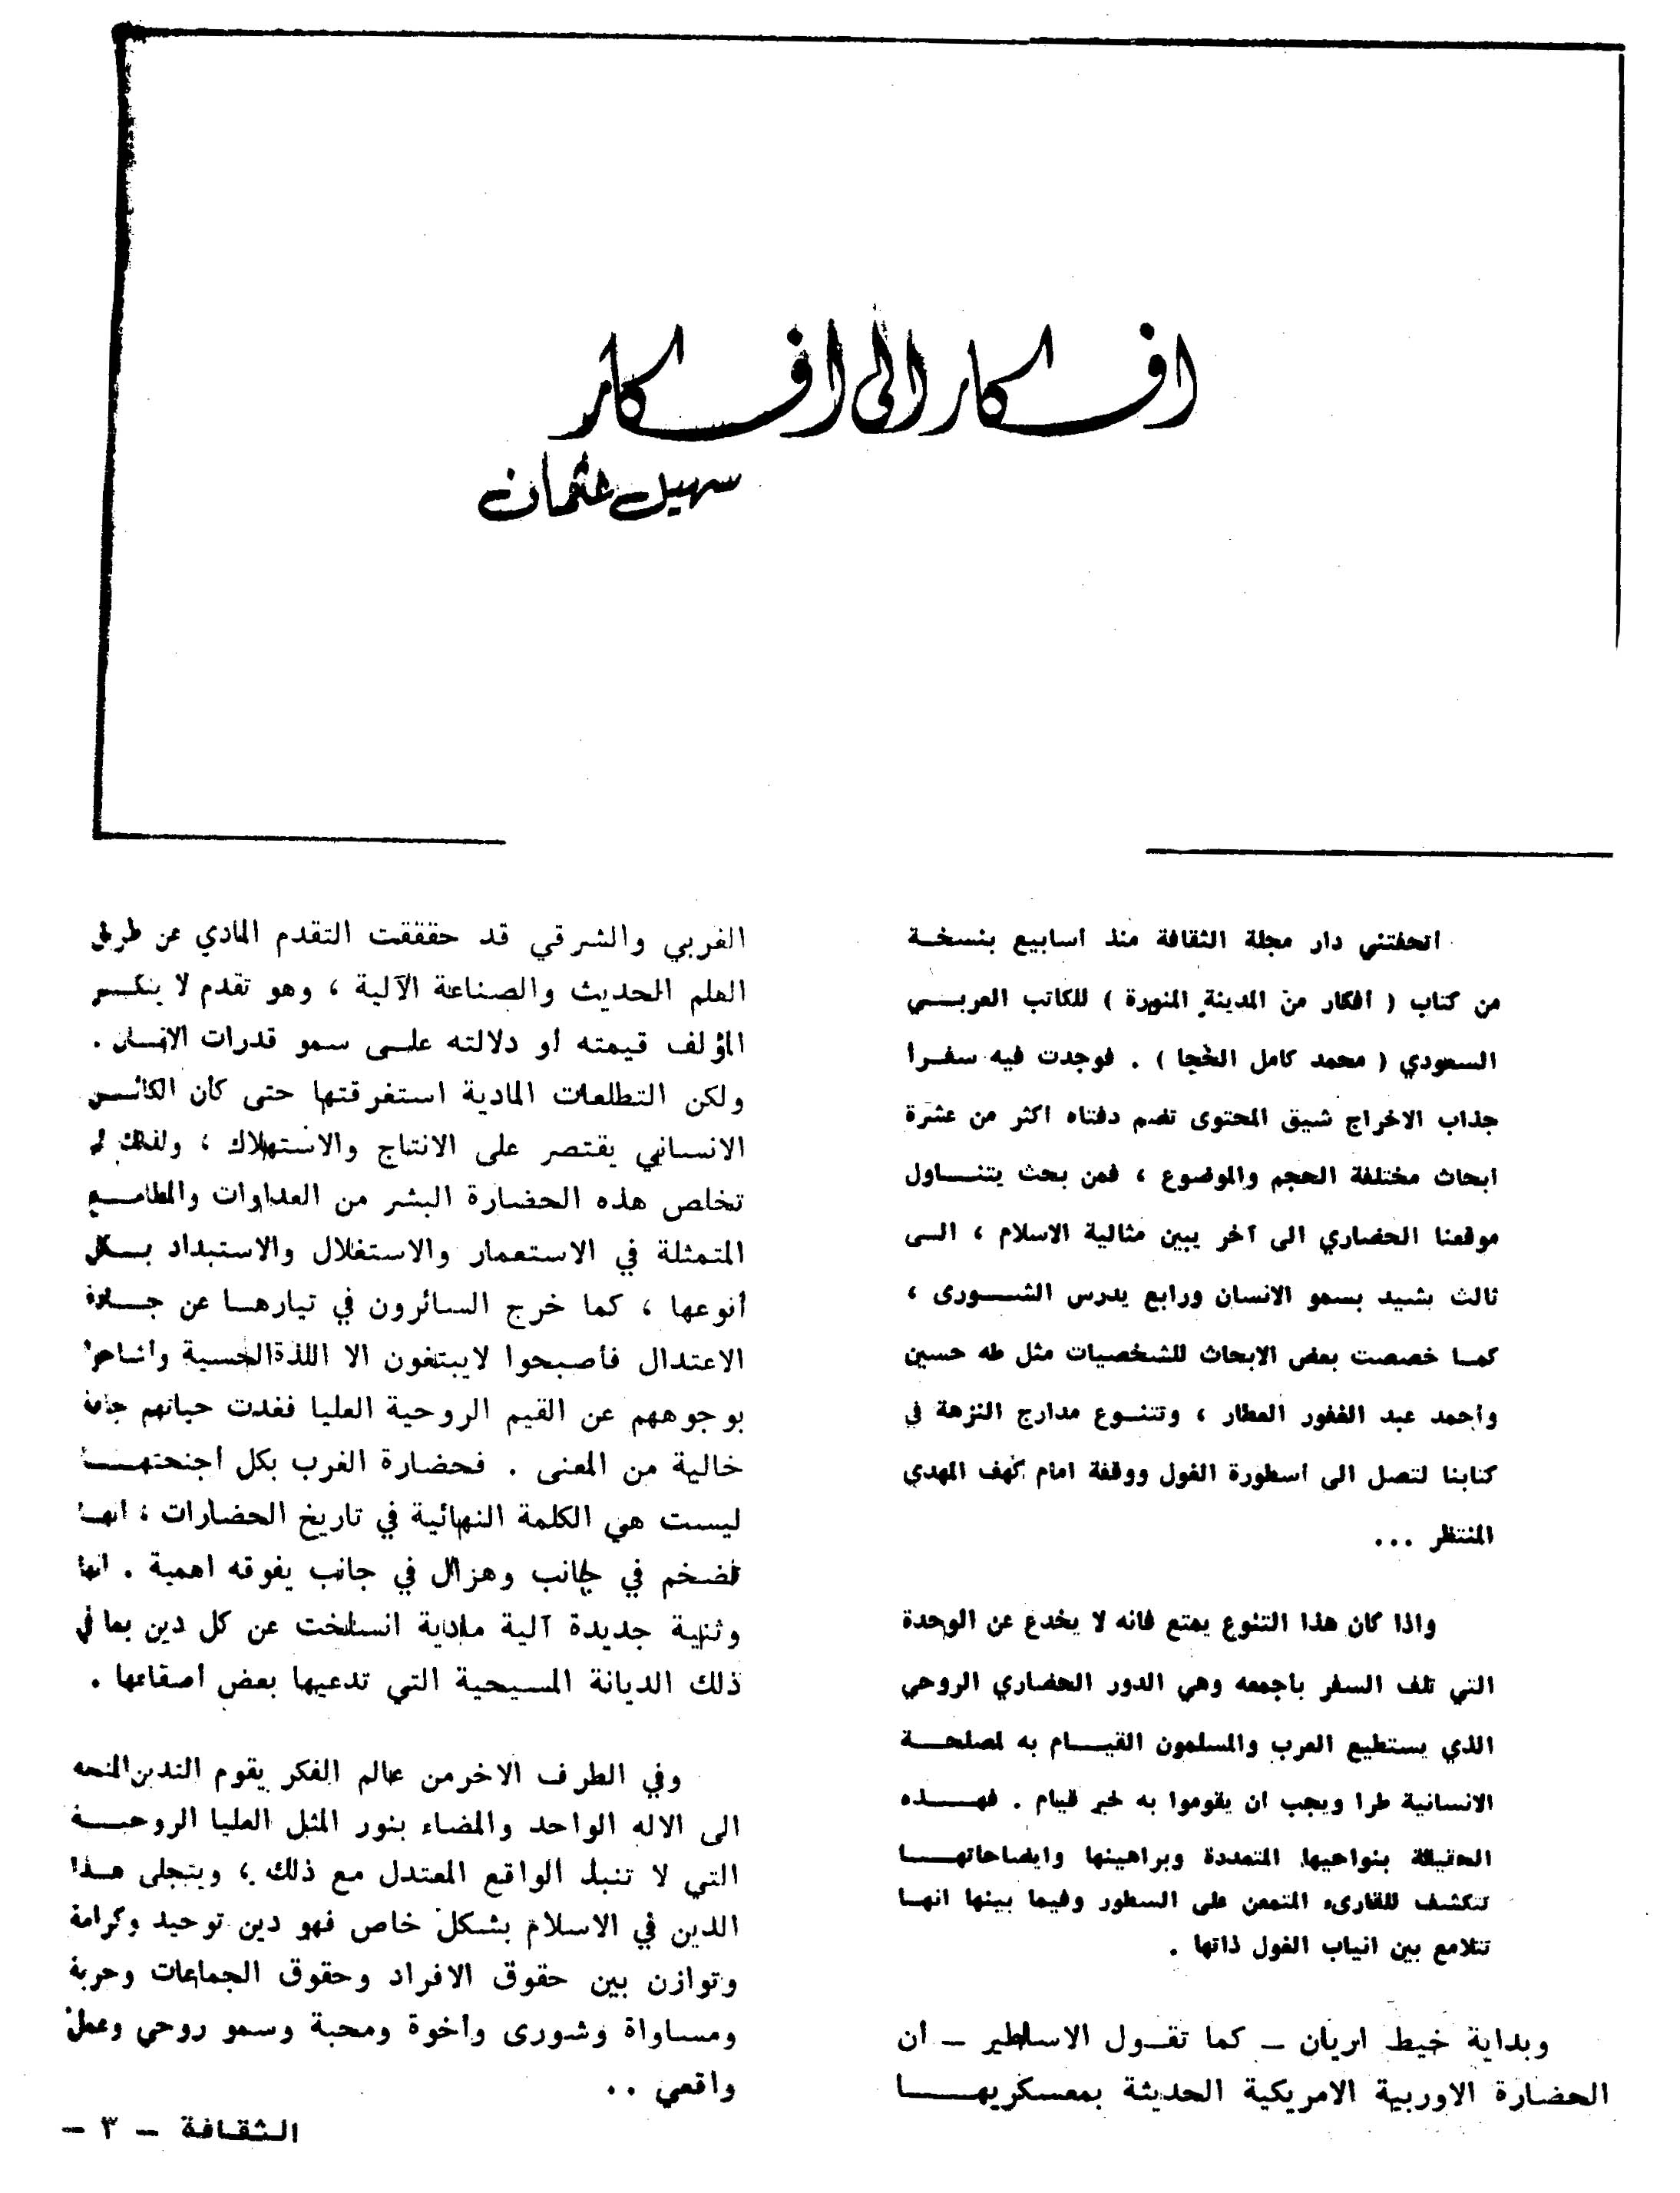 افكار الى افكار
سهيل عثمان
اتحفتني دار مجلة الثقافة منذ اسابيع بنسخة
من كتاب ( افكار من المدينة المنورة ) للكاتب العربي
السعودي ( محمد كامل الخجا ) . فوجدت فيه سفرا
جذاب الاخراج شيق المحتوى تضم دفتاه اكثر من عشرة
ابحاث مختلفة الحجم والموضوع ، فمن بحث يتناول
موقعنا الحضاري الى آخر يبين مثالية الاسلام ، الى
ثالث يشيد بسمو الانسان ورابع يدرس الشورى ،
كما خصصت بعض الابحاث للشخصيات مثل طه حسين
واحمد عبد الغفور العطار ، وتتنوع مدارج النزهة في
كتابنا لتصل الى اسطورة الغول ووقفة امام كهف المهدي
المنتظر ...
واذا كان هذا التنوع يمتع فانه لا يخدع عن الوحدة
التي تلف السفر باجمعه وهي الدور الحضاري الروحي
الذي يستطيع العرب والمسلمون القيام به لمصلحة
الانسانية طرا ويجب ان يقوموا به خير قيام . فهذه
الحقيقة بنواحيها المتعددة وبراهينها وايضاحاتها
تنكشف للقارىء المتمعن على السطور وفيما بينها انها
تتلامع بين انياب الغول ذاتها .
وبداية خيط اريان – كما تقول الاساطير – أن
الحضارة الاوربية الامريكية الحديثة بمعسكريها
الغربي والشرقي قد حقققت التقدم المادي عن طريق
العلم الحديث والصناعة الآلية ، وهو تقدم لا ينكر
المؤلف قيمته او دلالته على سمو قدرات الانسان .
ولكن التطلعات المادية استغرقتها حتى كأن الكائن
الانساني يقتصر على الانتاج والاستهلاك ، ولذلك لم
تخلص هذه الحضارة البشر من العداوات والمطامع
المتمثلة في الاستعمار والاستغلال والاستبداد بكل
أنوعها ، كما خرج السائرون في تيارها عن جادة
الاعتدال فأصبحوا لايبتغون الا اللذةالحسية وأشاحوا
بوجوههم عن القيم الروحية العليا فغدت حياتهم جافة
خالية من المعنى . فحضارة الغرب بكل أجنحتها
ليست هي الكلمة النهائية في تاريخ الحضارات ، انها
تضخم في جانب وهزال في جانب يفوقه اهمية . انها
وثنية جديدة آلية مادية انسلخت عن كل دين بما في
ذلك الديانة المسيحية التي تدعيها بعض أصقاعها .
وفي الطرف الاخرمن عالم الفكر يقوم التدين المتجه
الى الاله الواحد والمضاء بنور المثل العليا الروحية
التي لا تنبذ الواقع المعتدل مع ذلك ، ويتجلى هذا
الدين في الاسلام بشكل خاص فهو دين توحيد وكرامة
وتوازن بين حقوق الافراد وحقوق الجماعات وحرية
ومساواة وشورى وأخوة ومحبة وسمو روحي وعمل
واقعي ..
الثقافة – ٣ –